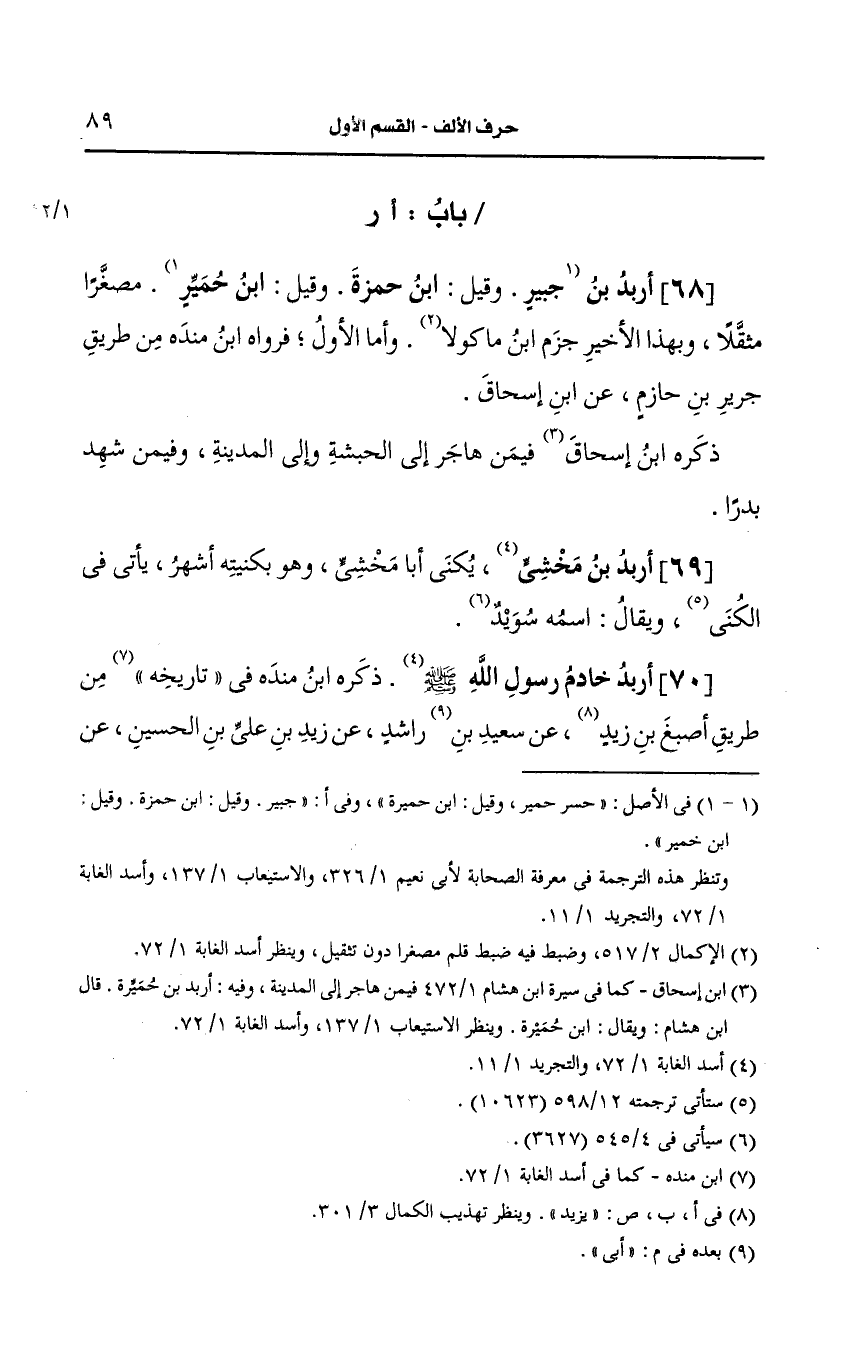 حرف الألف - القسم الأول ٨٩
/ بابُ : أ ر ٢/١
[٦٨] أربدُ بنُ (١جبيرٍ . وقيل : ابنُ حمزةَ . وقيل : ابنُ حُمَيِّرٍ١) . مصغَّرًا
مثقَّلًا ، وبهذا الأخيرِ جزَم ابنُ ماكولا(٢) . وأما الأولُ ؛ فرواه ابنُ مندَه مِن طريقِ
جريرِ بنِ حازمٍ ، عن ابنِ إسحاقَ .
ذكَره ابنُ إسحاقَ(٣) فيمَن هاجَر إلى الحبشةِ وإلى المدينةِ ، وفيمن شهِد
بدرًا .
[٦٩] أربدُ بنُ مَخْشِىٍّ(٤) ، يُكنَى أبا مَخْشِىٍّ ، وهو بكنيتِه أشهرُ ، يأتى فى
الكُنَى(٥) ، ويقالُ : اسمُه سُوَيْدٌ(٦) .
[٧٠] أربدُ خادمُ رسولِ اللَّهِ ﷺ(٤) . ذكَره ابنُ مندَه فى « تاريخِه »(٧) مِن
طريقِ أصبغَ بنِ زيدٍ(٨) ، عن سعيدِ بنِ(٩) راشدٍ ، عن زيدِ بنِ علىِّ بنِ الحسينِ ، عن
(١ - ١) فى الأصل : « حسر حمير ، وقيل : ابن حميرة » ، وفى أ : « جبير . وقيل : ابن حمزة . وقيل :
ابن خمير » .
وتنظر هذه الترجمة فى معرفة الصحابة لأبى نعيم ١/ ٣٢٦، والاستيعاب ١/ ١٣٧، وأسد الغابة
١/ ٧٢، والتجريد ١/ ١١.
(٢) الإكمال ٢/ ٥١٧، وضبط فيه ضبط قلم مصغرا دون تثقيل ، وينظر أسد الغابة ١/ ٧٢.
(٣) ابن إسحاق - كما فى سيرة ابن هشام ٤٧٢/١ فيمن هاجر إلى المدينة ، وفيه : أربد بن حُمَيِّرة . قال
ابن هشام : ويقال : ابن حُمَيْرة . وينظر الاستيعاب ١/ ١٣٧، وأسد الغابة ١/ ٧٢.
(٤) أسد الغابة ١/ ٧٢، والتجريد ١/ ١١.
(٥) ستأتى ترجمته ٥٩٨/١٢ (١٠٦٢٣) .
(٦) سيأتى فى ٥٤٥/٤ (٣٦٢٧) .
(٧) ابن منده - كما فى أسد الغابة ١/ ٧٢.
(٨) فى أ ، ب ، ص : « يزيد » . وينظر تهذيب الكمال ٣/ ٣٠١.
(٩) بعده فى م : « أبى » .